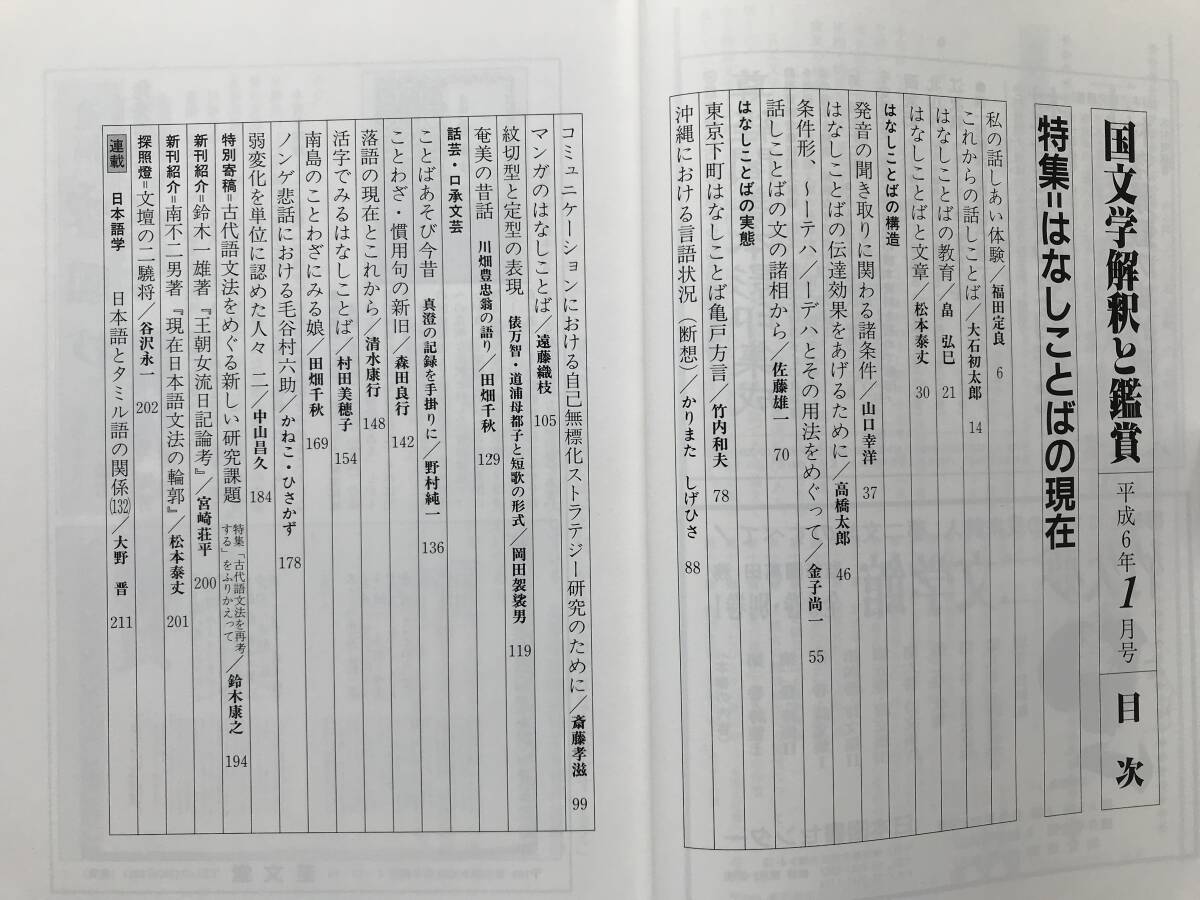 国文学解釈と鑑賞 平成6年1月号 目次
特集=はなしことばの現在
私の話しあい体験/福田定良 6
これからの話しことば/大石初太郎 14
はなしことばの教育/畠 弘巳 21
はなしことばと文章/松本泰丈 30
はなしことばの構造
発音の聞き取りに関わる諸条件/山口幸洋 37
はなしことばの伝達効果をあげるために/高橋太郎 46
条件形、〜ーテハ/ーデハとその用法をめぐって/金子尚一 55
話しことばの文の諸相から/佐藤雄一 70
はなしことばの実態
東京下町はなしことば亀戸方言/竹内和夫 78
沖縄における言語状況(断想)/かりまた しげひさ 88
コミュニケーションにおける自己無標化ストラテジー研究のために/斎藤孝滋 99
マンガのはなしことば/遠藤織枝 105
紋切型と定型の表現 俵万智・道浦母都子と短歌の形式/岡田袈裟男 119
奄美の昔話 川畑豊忠翁の語り/田畑千秋 129
話芸・口承文芸
ことばあそび今昔 真澄の記録を手掛りに/野村純一 136
ことわざ・慣用句の新旧/森田良行 142
落語の現在とこれから/清水康行 148
活字でみるはなしことば/村田美穂子 154
南島のことわざにみる娘/田畑千秋 169
ノンゲ悲話における毛谷村六助/かねこ・ひさかず 178
弱変化を単位に認めた人々 二/中山昌久 184
特別寄稿=古代語文法をめぐる新しい研究課題 特集「古代語文法を再考する」をふりかえって/鈴木康之 194
新刊紹介=鈴木一雄著『王朝女流日記論考』/宮崎荘平 200
新刊紹介=南不二男著『現在日本語文法の輪郭』/松本泰丈 201
探照燈=文壇の二驍将/谷沢永一 202
連載 日本語学 日本語とタミル語の関係(132)/大野 晋 211